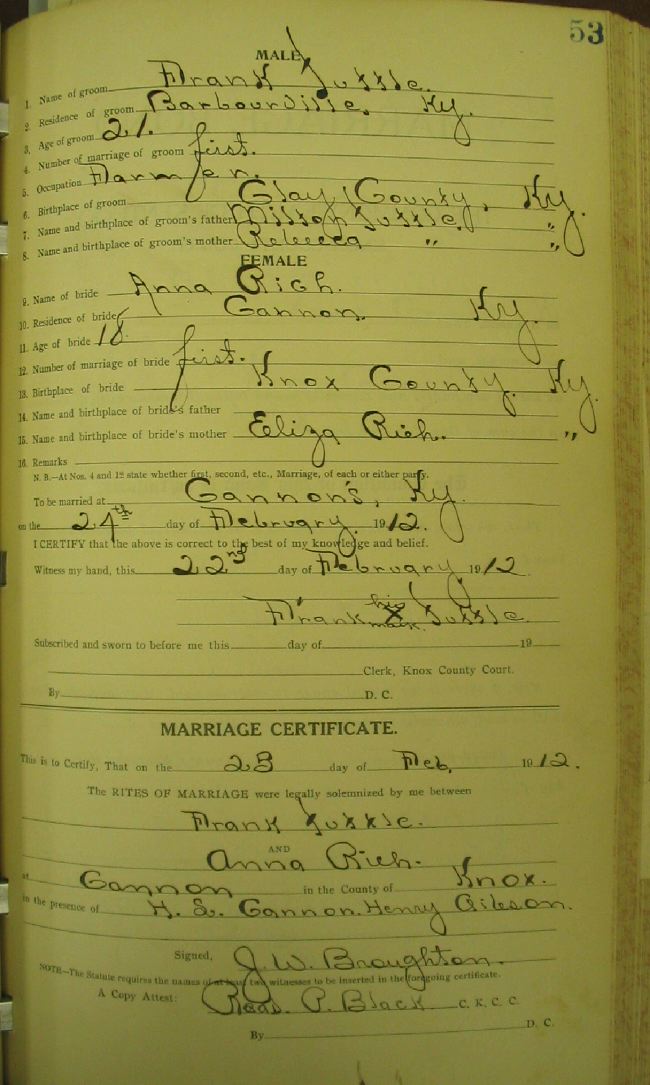 53
MALE
1. Name of groom Frank Tuttle.
2. Residence of groom Barbourville, Ky.
3. Age of groom 21.
4. Number of marriage of groom first.
5. Occupation Farmer.
6. Birthplace of groom Clay County, Ky.
7. Name and birthplace of groom's father Milton Tuttle, "
8. Name and birthplace of groom's mother Rebecca " "
FEMALE
9. Name of bride Anna Rich.
10. Residence of bride Cannon. Ky.
11. Age of bride 18
12. Number of marriage of bride first.
13. Birthplace of bride Knox County, Ky.
14. Name and birthplace of bride's father
15. Name and birthplace of bride's mother Eliza Rich. "
16. Remarks
N. B.—At Nos. 4 and 12 state whether first, second, etc., Marriage, of each or either party.
To be married at Cannon's, Ky.
on the 24th day of February, 1912.
I CERTIFY that the above is correct to the best of my knowledge and belief.
Witness my hand, this 22nd day of February 1912
Frank his X mark Tuttle
Subscribed and sworn to before me this day of 19
Clerk, Knox County Court.
By D. C.
MARRIAGE CERTIFICATE.
This is to Certify, That on the 23 day of Feb, 1912.
The RITES OF MARRIAGE were legally solemnized by me between
Frank Tuttle.
AND
Anna Rich.
at Cannon in the County of Knox.
in the presence of H. L. Cannon. Henry Gibson.
Signed, J. W. Broughton.
NOTE—The Statute requires the names of at least two witnesses to be inserted in the foregoing certificate.
A Copy Attest: P. Black C. K. C. C.
By D. C.